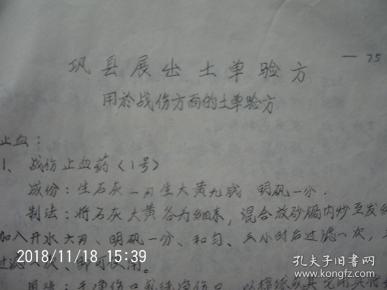 —75
巩县展出土单验方
用於战伤方面的土单验方
止血:
1、战伤止血药(1号)
成份:生石灰一斤生大黄九戋 明矾一分.
制法:将石灰大黄 为细末,混合放砂锅内炒至发
加入开水六斤、明矾一分、和匀、三小时后过滤一次、
过滤 次、即可使用。
2018/11/18 15:39
孔夫子旧书网